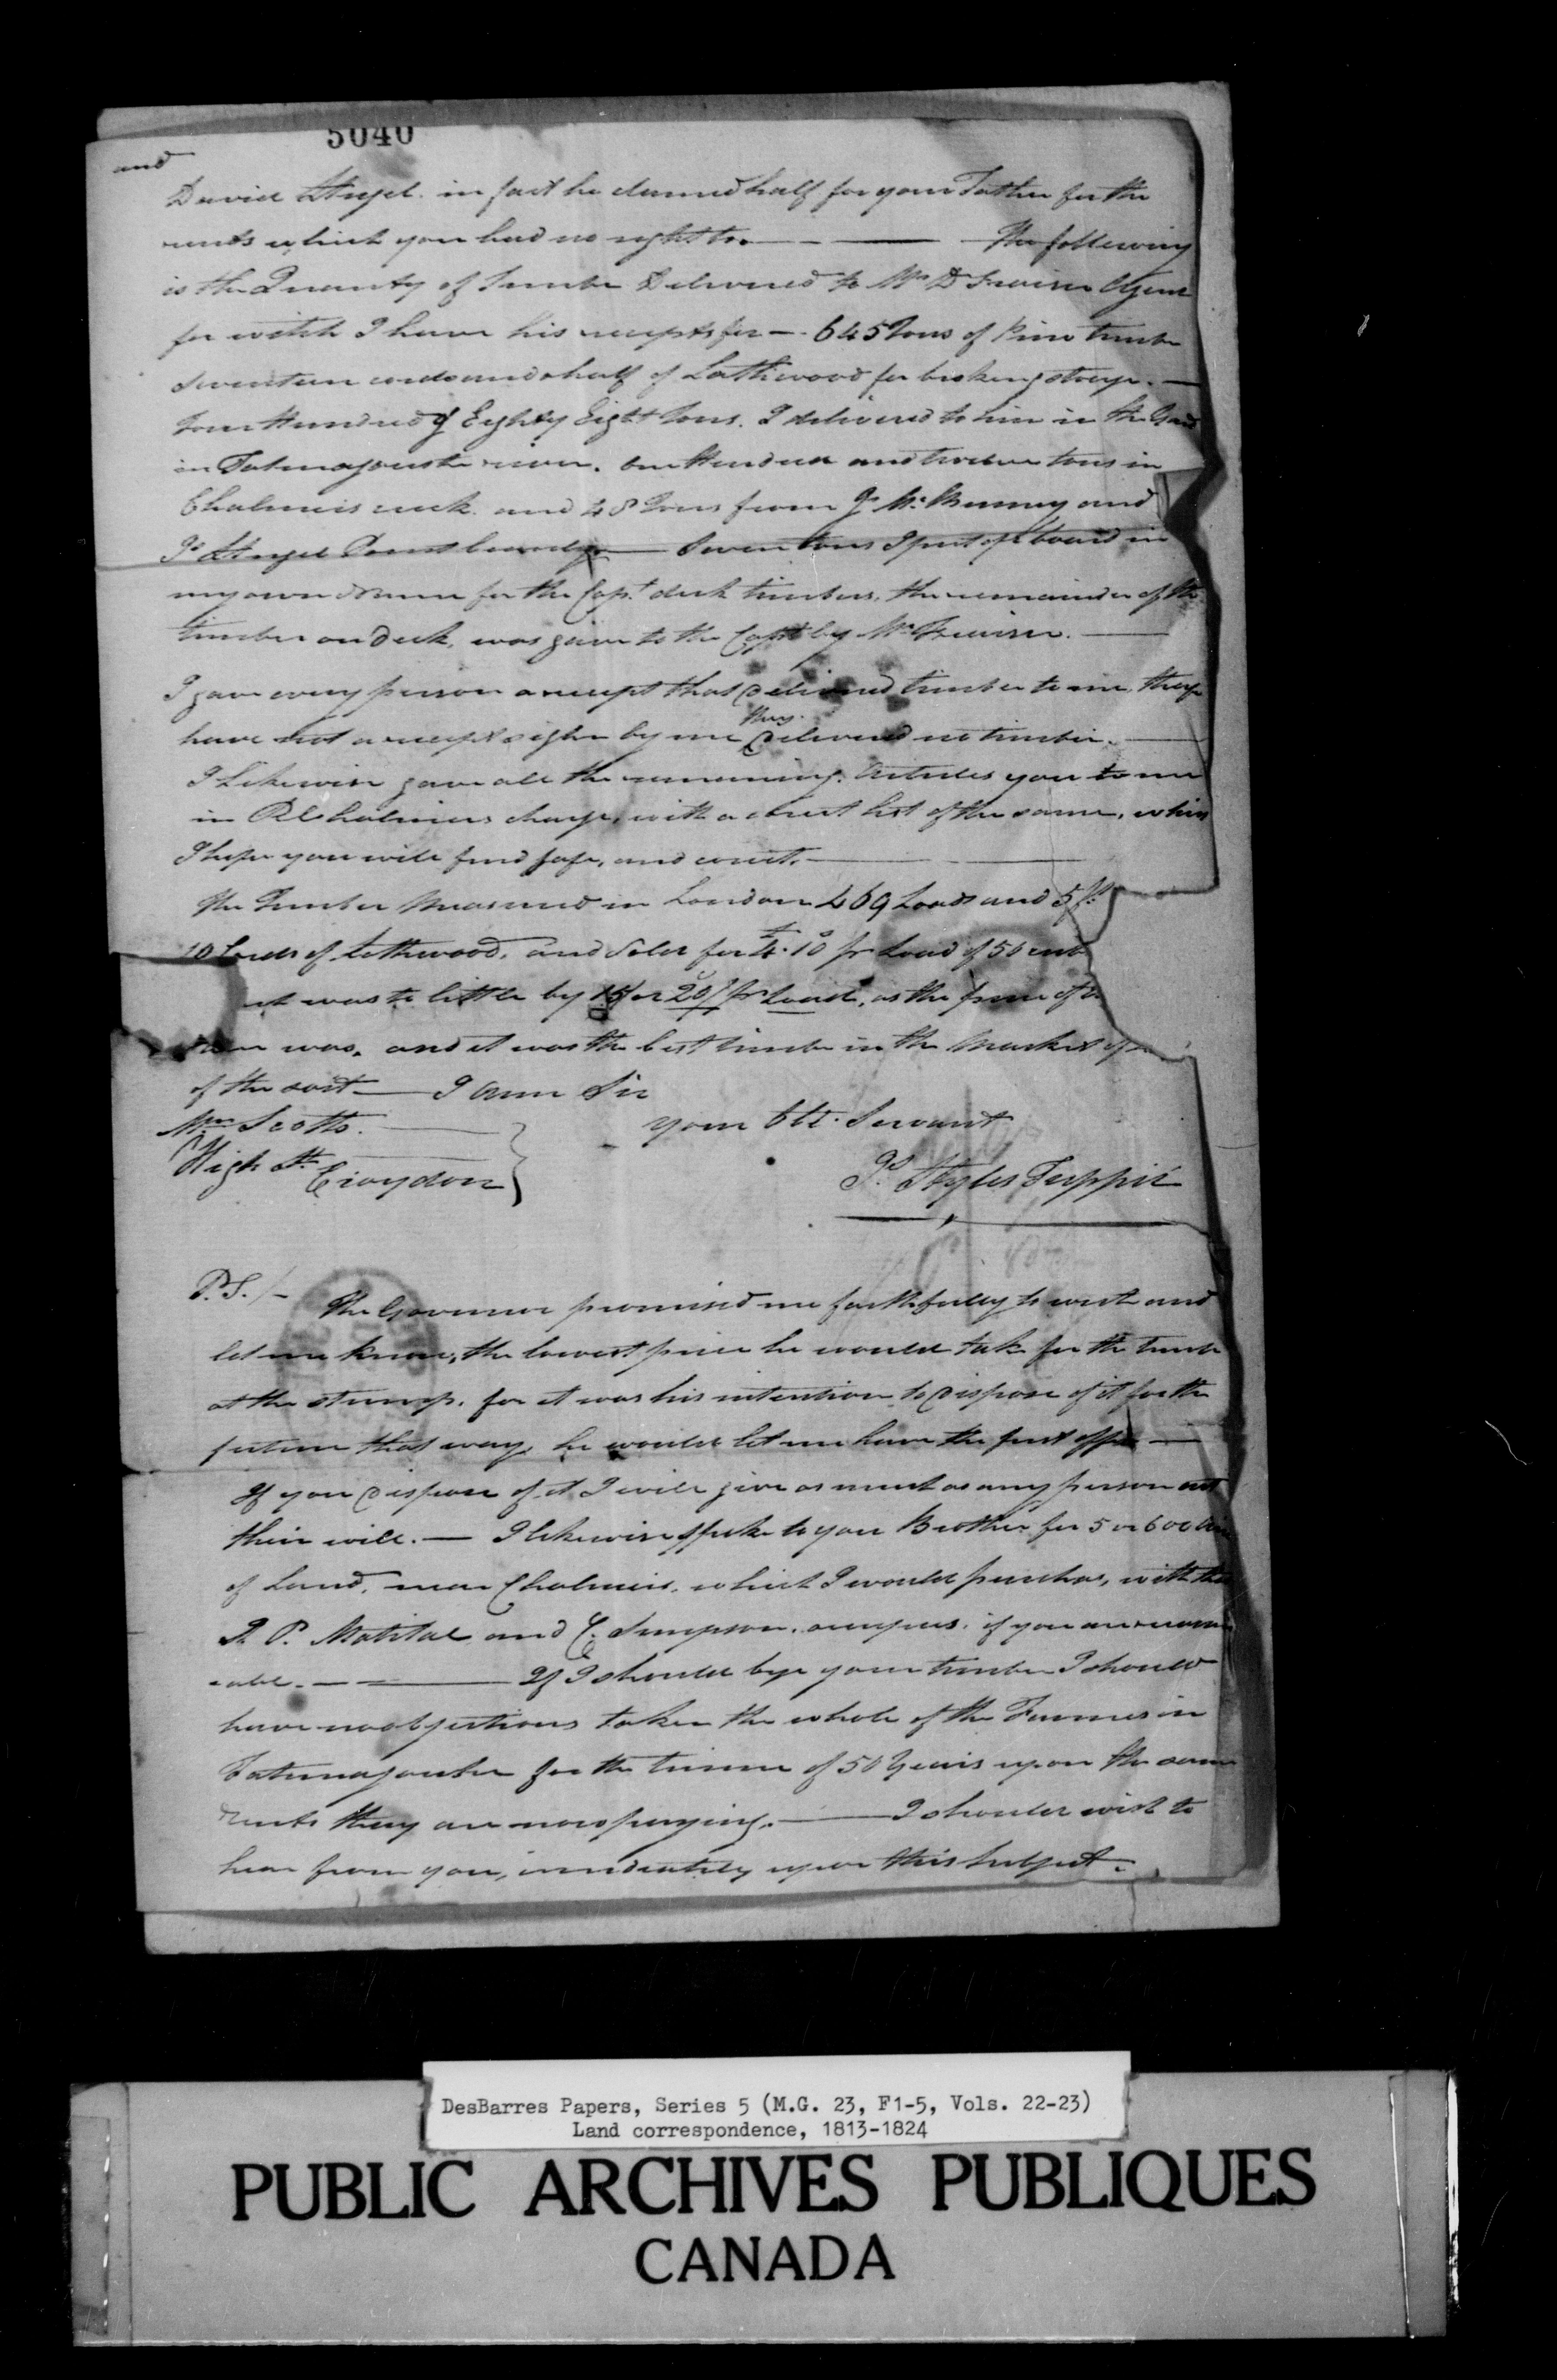 5040
and
David Angel. in fact he claimed half for your Father for the
rents which you had no right to. The following
is the Quanty of Timber Delivered to Mr D Agent
for witch I have his recepts for — 645 Tons of Pine timber
Seventeen cords and half of Lathwood for broking stowge. —
Four Hundred & Eighty Eight Tons. I delivered to him in the
in Tatmagouche river. one Hundred and twelve tons in
Chalmers creek. and 48 Tons from J. Mc and
Js Angel Seven tons I put off board in
my own for the Capt deck timbers, the remainder of the
timber on deck, was gave to the Capt by Mr
I gave every person a recept that Delivered timber to me, they
have not a recept sighn by me they Delivered no timber. —
I Likewise gave all the remaining Articles you to me
in R Chalmers charge, with a corect list of the same, which
I hope you will find safe, and corect. —
The Timber Measured in London 469 Loads and 5 ft
10 Cords of Lathwood. and Sold for £4.10s pr Load of 50
was to little by 15/ or 20/ pr Load, as the price of
was. and it was the best timber in the Market
of the sort — I am Sir
Mr Scotts.
your Obt. Servant
High St Croydon
Js. Styles Tupper
P.S. /-
The Governor promised me faithfully to write and
let me know, the lowest price he would take for the timber
at the stump. for it was his intention to Dispose of it for the
future that way, he would let me have the first offer —
If you Dispose of it I will give as much as any person
their will. — I likewise spoke to your Brother for 5 or 600
of Land, near Chalmers, which I would purchas, with that
P. and C. Simpson. occupies. if you are reason
-able. — If I should bye your timber I should
have no objections taken the whole of the Farmes in
Tatmagouche for the time of 50 Years upon the same
Rents they are now paying. — I should wish to
hear from you, imediately upon this Subject.
DesBarres Papers, Series 5 (M.G. 23, F1-5, Vols. 22-23)
Land correspondence, 1813-1824
PUBLIC ARCHIVES PUBLIQUES
CANADA